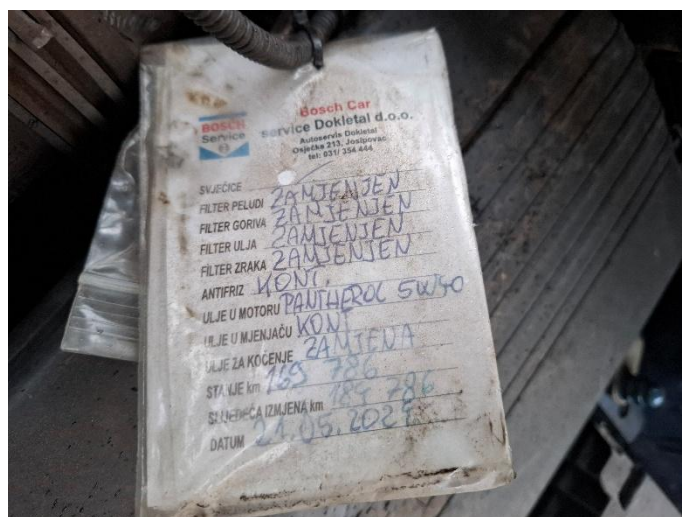 BOSCH
Service
Bosch Car
Service Dokletal d.o.o.
Autoservis Dokletal
Osječka 213, Josipovac
tel: 031/ 354 444
SVJEĆICE
FILTER PELUDI ZAMJENJEN
FILTER GORIVA ZAMJENJEN
FILTER ULJA ZAMJENJEN
FILTER ZRAKA ZAMJENJEN
ANTIFRIZ KONT.
ULJE U MOTORU PANTHEROL 5W40
ULJE U MJENJAČU KONT
ULJE ZA KOČENJE ZAMJENA
STANJE km 169 786
SLJEDEĆA IZMJENA km 184 786
DATUM 21.05.2024.